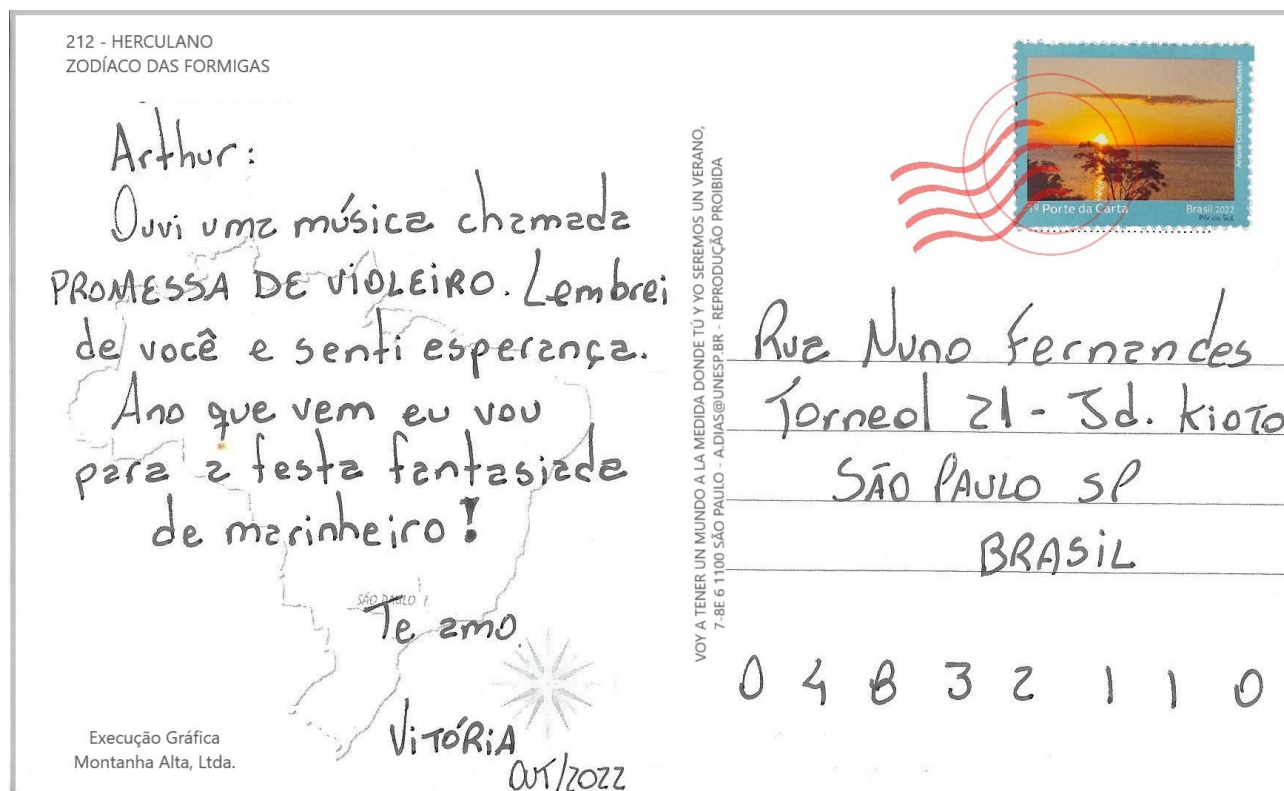 212 - HERCULANO
ZODÍACO DAS FORMIGAS
Arthur:
Ouvi uma música chamada
PROMESSA DE VIOLEIRO. Lembrei
de você e senti esperança.
Ano que vem eu vou
para a festa fantasiada
de marinheiro!
SÃO PAULO
Te amo.
VITÓRIA
OUT/2022
Execução Gráfica
Montanha Alta, Ltda.
VOY A TENER UN MUNDO A LA MEDIDA DONDE TÚ Y YO SEREMOS UN VERANO,
7-8E 6 1100 SÃO PAULO - A.DIAS@UNESP.BR - REPRODUÇÃO PROIBIDA
Ariane Cristina Dutra/Sudeste
1º Porte da Carta
Brasil 2022
Pôr do Sol
Rua Nuno Fernandes
Torneol 21 - Jd. Kioto
SÃO PAULO SP
BRASIL
04832110